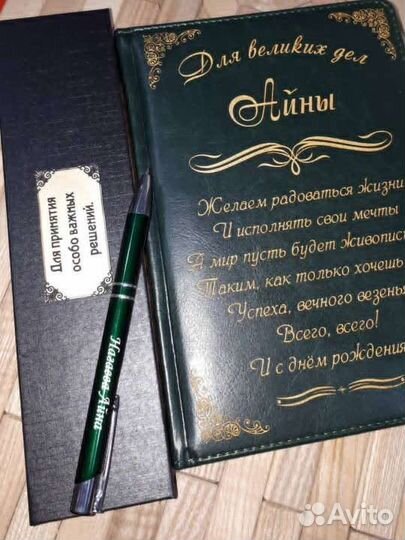 Для принятия
особо важных
решений.
Для великих дел
Айны
Желаем радоваться жизни
И исполнять свои мечты
А мир пусть будет живопис
Таким, как только хочешь
Успеха, вечного везень
Всего, всего!
И с днём рождения
Айна
Avito